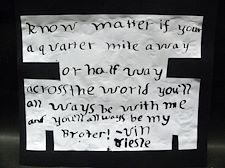 know matter if your
a quarter mile away
or half way
across the world you'll
all ways be with me
and you'll all ways be my
Broter! -Vin
Diesle